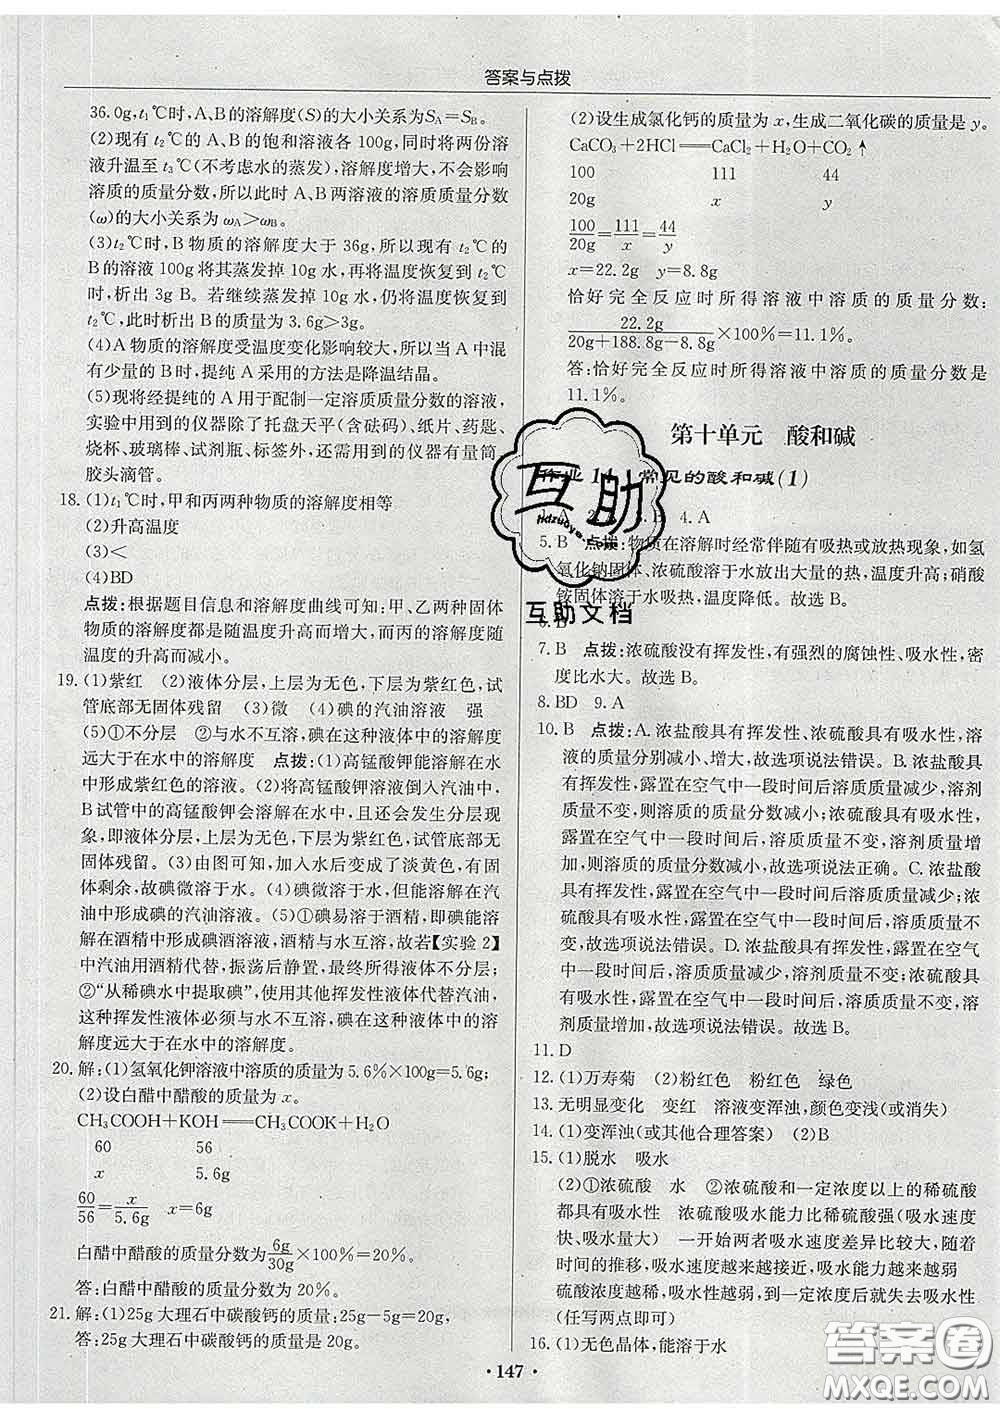 答案与点拨
36.0g,t₁℃时,A、B的溶解度(S)的大小关系为S_A=S_B。
(2)现有 t₂℃的 A、B 的饱和溶液各 100g,同时将两份溶
液升温至 t₃℃(不考虑水的蒸发),溶解度增大,不会影响
溶质的质量分数,所以此时 A、B两溶液的溶质质量分数
(ω)的大小关系为 ω_A>ω_B。
(3)t₂℃时,B物质的溶解度大于 36g,所以现有 t₂℃的
B的溶液 100g将其蒸发掉 10g水,再将温度恢复到 t₂℃
时,析出 3g B。若继续蒸发掉 10g水,仍将温度恢复到
t₂℃,此时析出 B的质量为 3.6g>3g。
(4)A物质的溶解度受温度变化影响较大,所以当 A中混
有少量的 B时,提纯 A采用的方法是降温结晶。
(5)现将经提纯的 A用于配制一定溶质质量分数的溶液,
实验中用到的仪器除了托盘天平(含砝码)、纸片、药匙、
烧杯、玻璃棒、试剂瓶、标签外,还需要用到的仪器有量筒、
胶头滴管。
18. (1)t₁℃时,甲和丙两种物质的溶解度相等
(2)升高温度
(3)<
(4)BD
点拨:根据题目信息和溶解度曲线可知:甲、乙两种固体
物质的溶解度都是随温度升高而增大,而丙的溶解度随
温度的升高而减小。
19. (1)紫红 (2)液体分层,上层为无色,下层为紫红色,试
管底部无固体残留 (3)微 (4)碘的汽油溶液 强
(5)①不分层 ②与水不互溶,碘在这种液体中的溶解度
远大于在水中的溶解度 点拨:(1)高锰酸钾能溶解在水
中形成紫红色的溶液。(2)将高锰酸钾溶液倒入汽油中,
B试管中的高锰酸钾会溶解在水中,还会发生分层现
象,即液体分层,上层为无色,下层为紫红色,试管底部无
固体残留。(3)由图可知,加入水后变成了淡黄色,有固
体剩余,故碘微溶于水。(4)碘微溶于水,但能溶解在汽
油中形成碘的汽油溶液。(5)①碘易溶于酒精,即碘能溶
解在酒精中形成碘酒溶液,酒精与水互溶,故若【实验 2】
中汽油用酒精代替,振荡后静置,最终所得液体不分层;
②“从稀碘水中提取碘”,使用其他挥发性液体代替汽油,
这种挥发性液体必须与水不互溶,碘在这种液体中的溶
解度远大于在水中的溶解度。
20. 解:(1)氢氧化钾溶液中溶质的质量为 5.6%×100g=5.6g;
(2)设白醋中醋酸的质量为 x。
CH₃COOH+KOH══CH₃COOK+H₂O
60 56
x 5.6g
60/56=x/5.6g x=6g
白醋中醋酸的质量分数为6g/30g×100%=20%。
答:白醋中醋酸的质量分数为 20%。
21. 解:(1)25g大理石中碳酸钙的质量:25g−5g=20g,
答:25g大理石中碳酸钙的质量是 20g。
(2)设生成氯化钙的质量为 x,生成二氧化碳的质量是 y。
CaCO₃+2HCl══CaCl₂+H₂O+CO₂↑
100 111 44
20g x y
100/20g=111/x=44/y
x=22.2g y=8.8g
恰好完全反应时所得溶液中溶质的质量分数:
22.2g/(20g+188.8g−8.8g)×100%=11.1%。
答:恰好完全反应时所得溶液中溶质的质量分数是
11.1%。
第十单元 酸和碱
常见的酸和碱(1)
4. A
5. B 点拨:物质在溶解时经常伴随有吸热或放热现象,如氢
氧化钠固体、浓硫酸溶于水放出大量的热,温度升高;硝酸
铵固体溶于水吸热,温度降低。故选 B。
6. B
7. B 点拨:浓硫酸没有挥发性,有强烈的腐蚀性、吸水性,密
度比水大。故选 B。
8. BD 9. A
10. B 点拨:A. 浓盐酸具有挥发性、浓硫酸具有吸水性,溶
液的质量分别减小、增大,故选项说法错误。B. 浓盐酸具
有挥发性,露置在空气中一段时间后溶质质量减少,溶剂
质量不变,则溶质的质量分数减小;浓硫酸具有吸水性,
露置在空气中一段时间后,溶质质量不变,溶剂质量增
加,则溶质的质量分数减小,故选项说法正确。C. 浓盐酸
具有挥发性,露置在空气中一段时间后溶质质量减少;
浓硫酸具有吸水性,露置在空气中一段时间后,溶质质量
不变,故选项说法错误。D. 浓盐酸具有挥发性,露置在空
气中一段时间后,溶质质量减少,溶剂质量不变;浓硫酸
具有吸水性,露置在空气中一段时间后,溶质质量不变,溶
剂质量增加,故选项说法错误。故选 B。
11. D
12. (1)万寿菊 (2)粉红色 粉红色 绿色
13. 无明显变化 变红 溶液变浑浊,颜色变浅(或消失)
14. (1)变浑浊(或其他合理答案) (2)B
15. (1)脱水 吸水
(2)①浓硫酸 水 ②浓硫酸和一定浓度以上的稀硫酸
都具有吸水性 浓硫酸吸水能力比稀硫酸强(吸水速度
快、吸水量大) 一开始两者吸水速度差异比较大,随着
时间的推移,吸水速度越来越接近,吸水能力越来越弱
硫酸浓度越稀,吸水性越弱,到一定浓度后就失去吸水性
(任写两点即可)
16. (1)无色晶体,能溶于水
互助
Hdzuoye.com
互助文档
答案圈
MXQE.COM
• 147 •